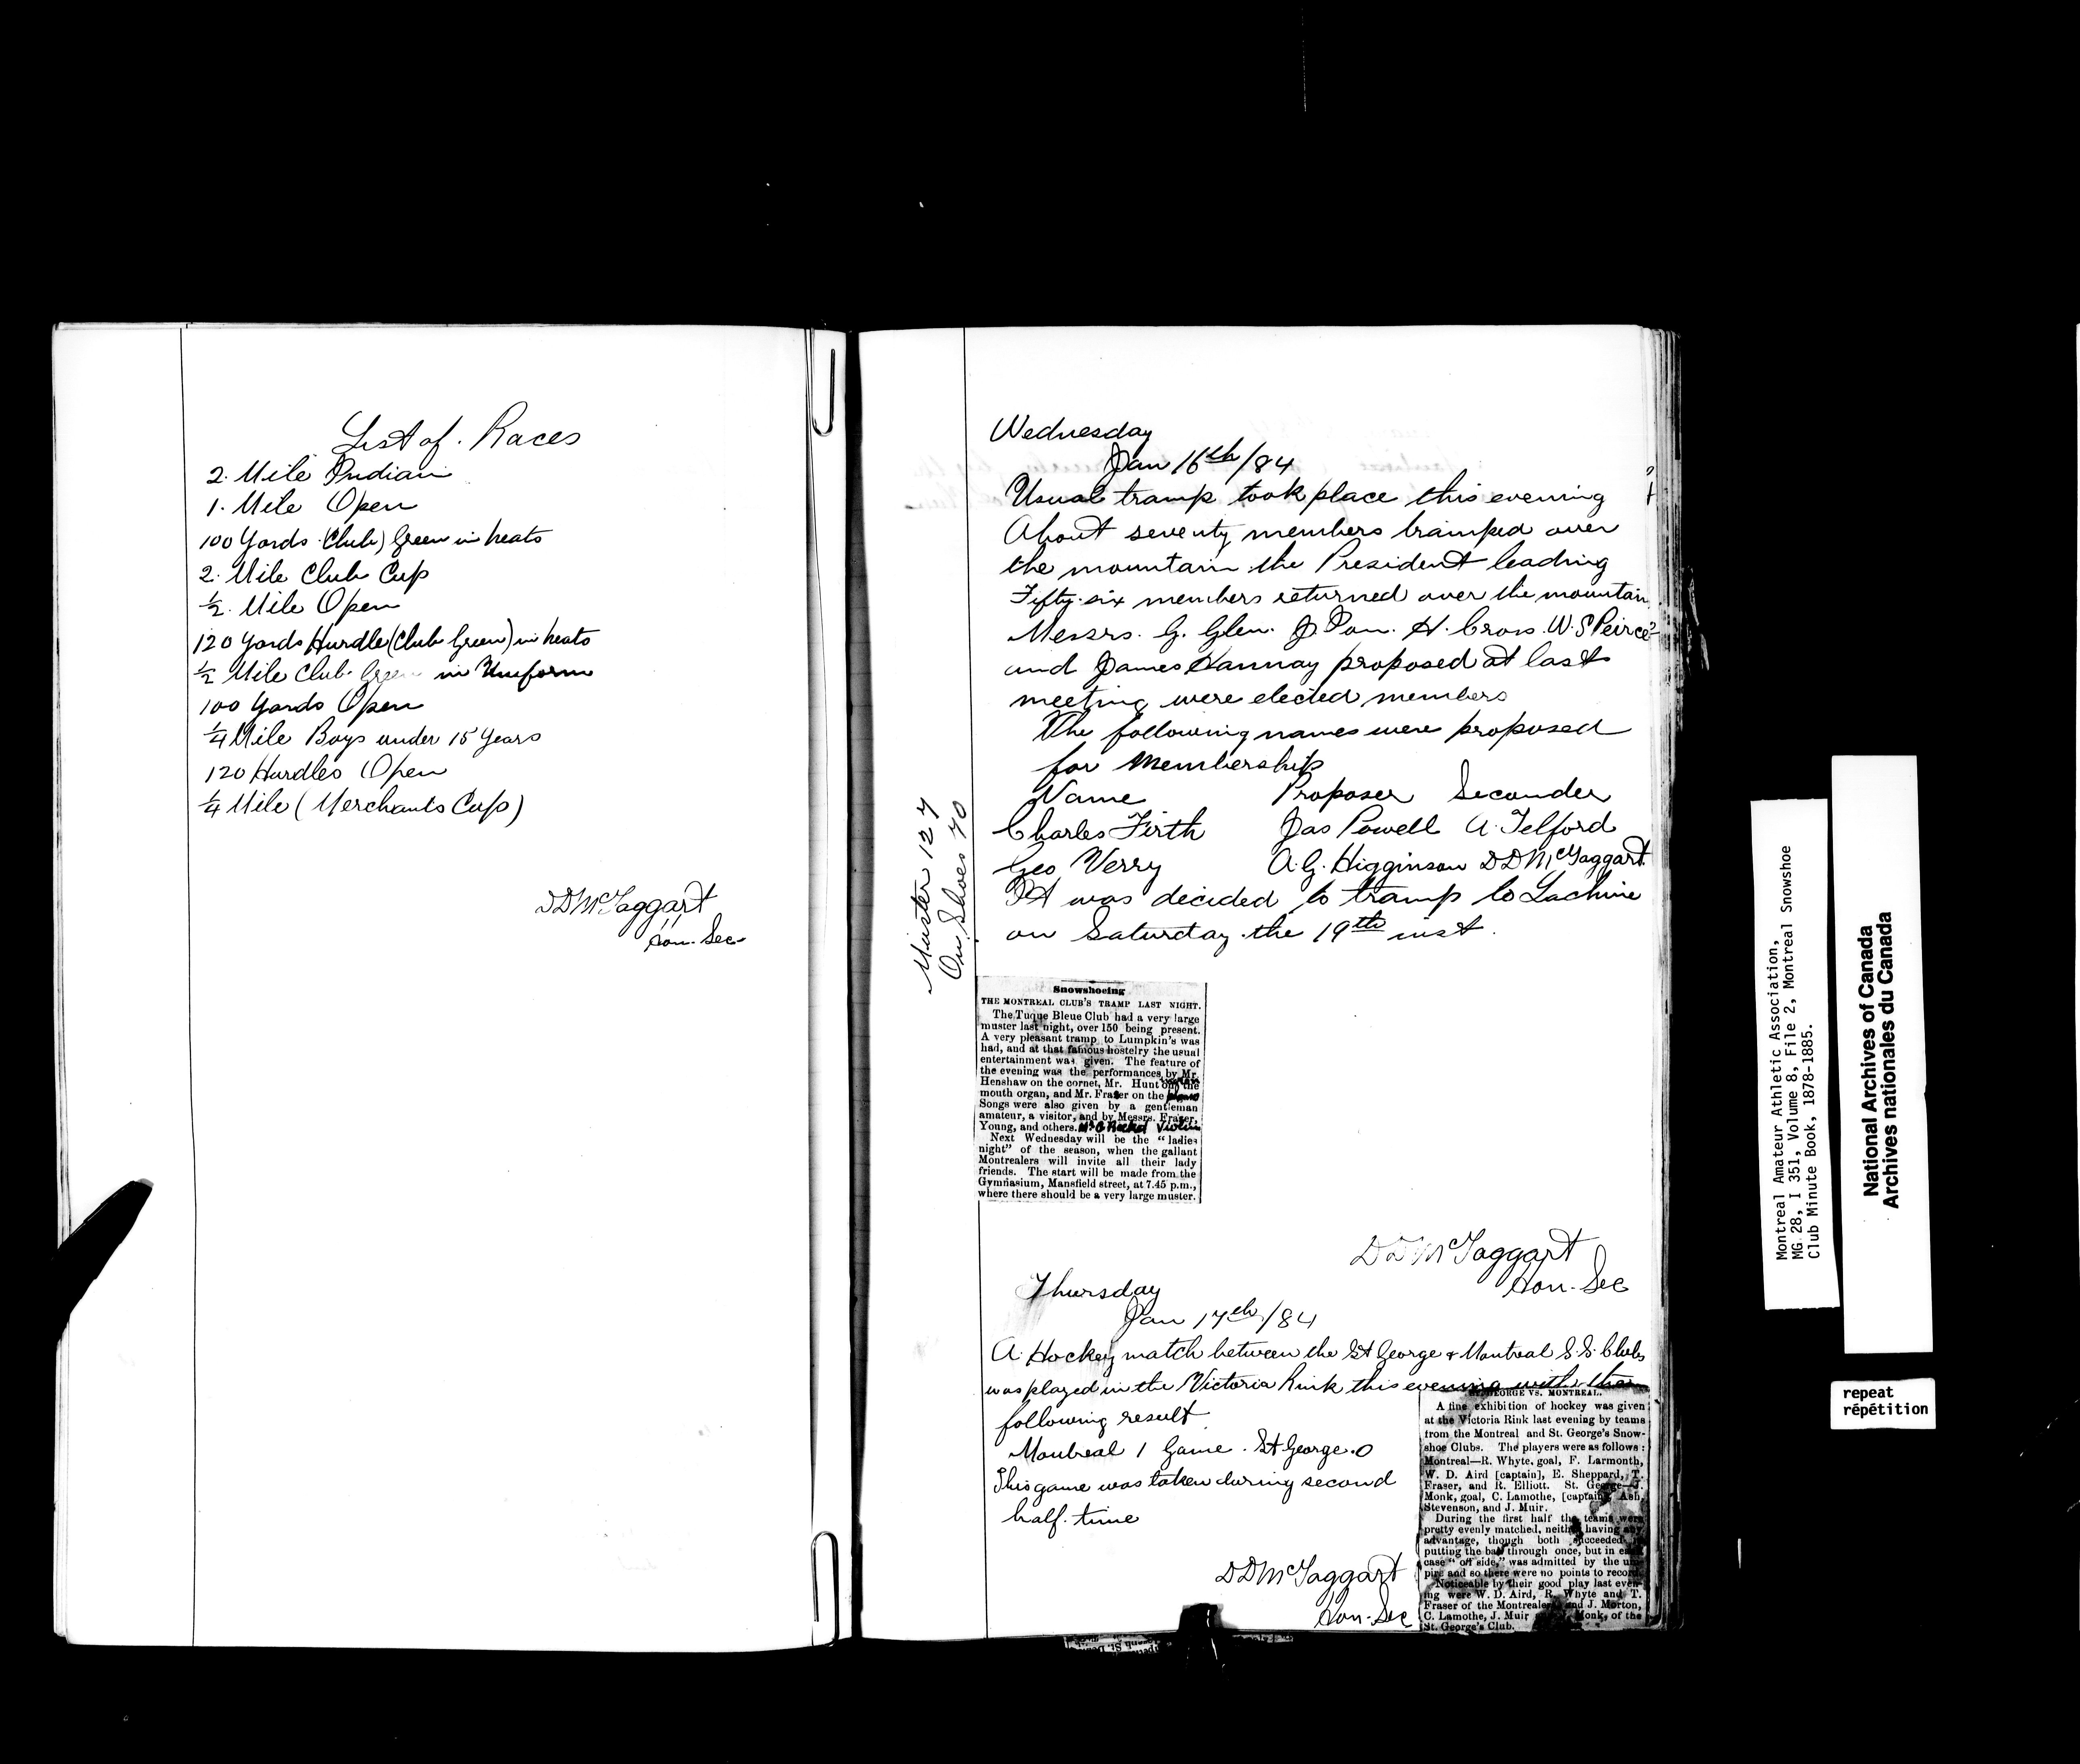 List of Races
2. Mile Indian
1. Mile Open
100 Yards (Club) Green in heats
2. Mile Club Cup
½. Mile Open
120 Yards Hurdle (Club Green) in heats
½ Mile Club Green in Uniform
100 Yards Open
¼ Mile Boys under 15 Years
120 Hurdles Open
¼ Mile (Merchants Cup)
DD McTaggart
Hon. Sec
Wednesday
Jan 16th/84
Usual tramp took place this evening
About seventy members tramped over
the mountain the President leading
Fifty-six members returned over the mountain
Messrs. G. Glen. J. H. Cross. W. S Peirce
and James Hannay proposed at last
meeting were elected members
The following names were proposed
for Membership
Name Proposer Seconder
Charles Firth Jas Powell A. Telford
Geo Verry A. G. Higginson DD McTaggart
It was decided to tramp to Lachine
on Saturday the 19th inst.
Muster 127
On Shoes 70
Snowshoeing
THE MONTREAL CLUB'S TRAMP LAST NIGHT.
The Tuque Bleue Club had a very large
muster last night, over 150 being present.
A very pleasant tramp to Lumpkin's was
had, and at that famous hostelry the usual
entertainment was given. The feature of
the evening was the performances by Mr.
Henshaw on the cornet, Mr. Hunt on the
mouth organ, and Mr. Fraser on the piano
Songs were also given by a gentleman
amateur, a visitor, and by Messrs. Fraser,
Young, and others. Violin
Next Wednesday will be the "ladies
night" of the season, when the gallant
Montrealers will invite all their lady
friends. The start will be made from the
Gymnasium, Mansfield street, at 7.45 p.m.,
where there should be a very large muster.
DD McTaggart
Hon. Sec
Thursday
Jan 17th/84
A Hockey match between the St George & Montreal S.S. Clubs
was played in the Victoria Rink this evening with the
following result
Montreal 1 Game. St George. 0
This game was taken during second
half. time
DD McTaggart
Hon. Sec
GEORGE VS. MONTREAL.
A fine exhibition of hockey was given
at the Victoria Rink last evening by teams
from the Montreal and St. George's Snow-
shoe Clubs. The players were as follows:
Montreal—R. Whyte, goal, F. Larmonth,
W. D. Aird [captain], E. Sheppard, T.
Fraser, and R. Elliott. St. George—J.
Monk, goal, C. Lamothe, [captain] Ash,
Stevenson, and J. Muir.
During the first half the teams were
pretty evenly matched, neither having any
advantage, though both succeeded in
putting the ball through once, but in each
case "off side," was admitted by the um-
pire and so there were no points to record.
Noticeable by their good play last even-
ing were W. D. Aird, R. Whyte and T.
Fraser of the Montrealers and J. Morton,
C. Lamothe, J. Muir Monk, of the
St. George's Club.
Montreal Amateur Athletic Association,
MG 28, I 351, Volume 8, File 2, Montreal Snowshoe
Club Minute Book, 1878-1885.
National Archives of Canada
Archives nationales du Canada
repeat
répétition